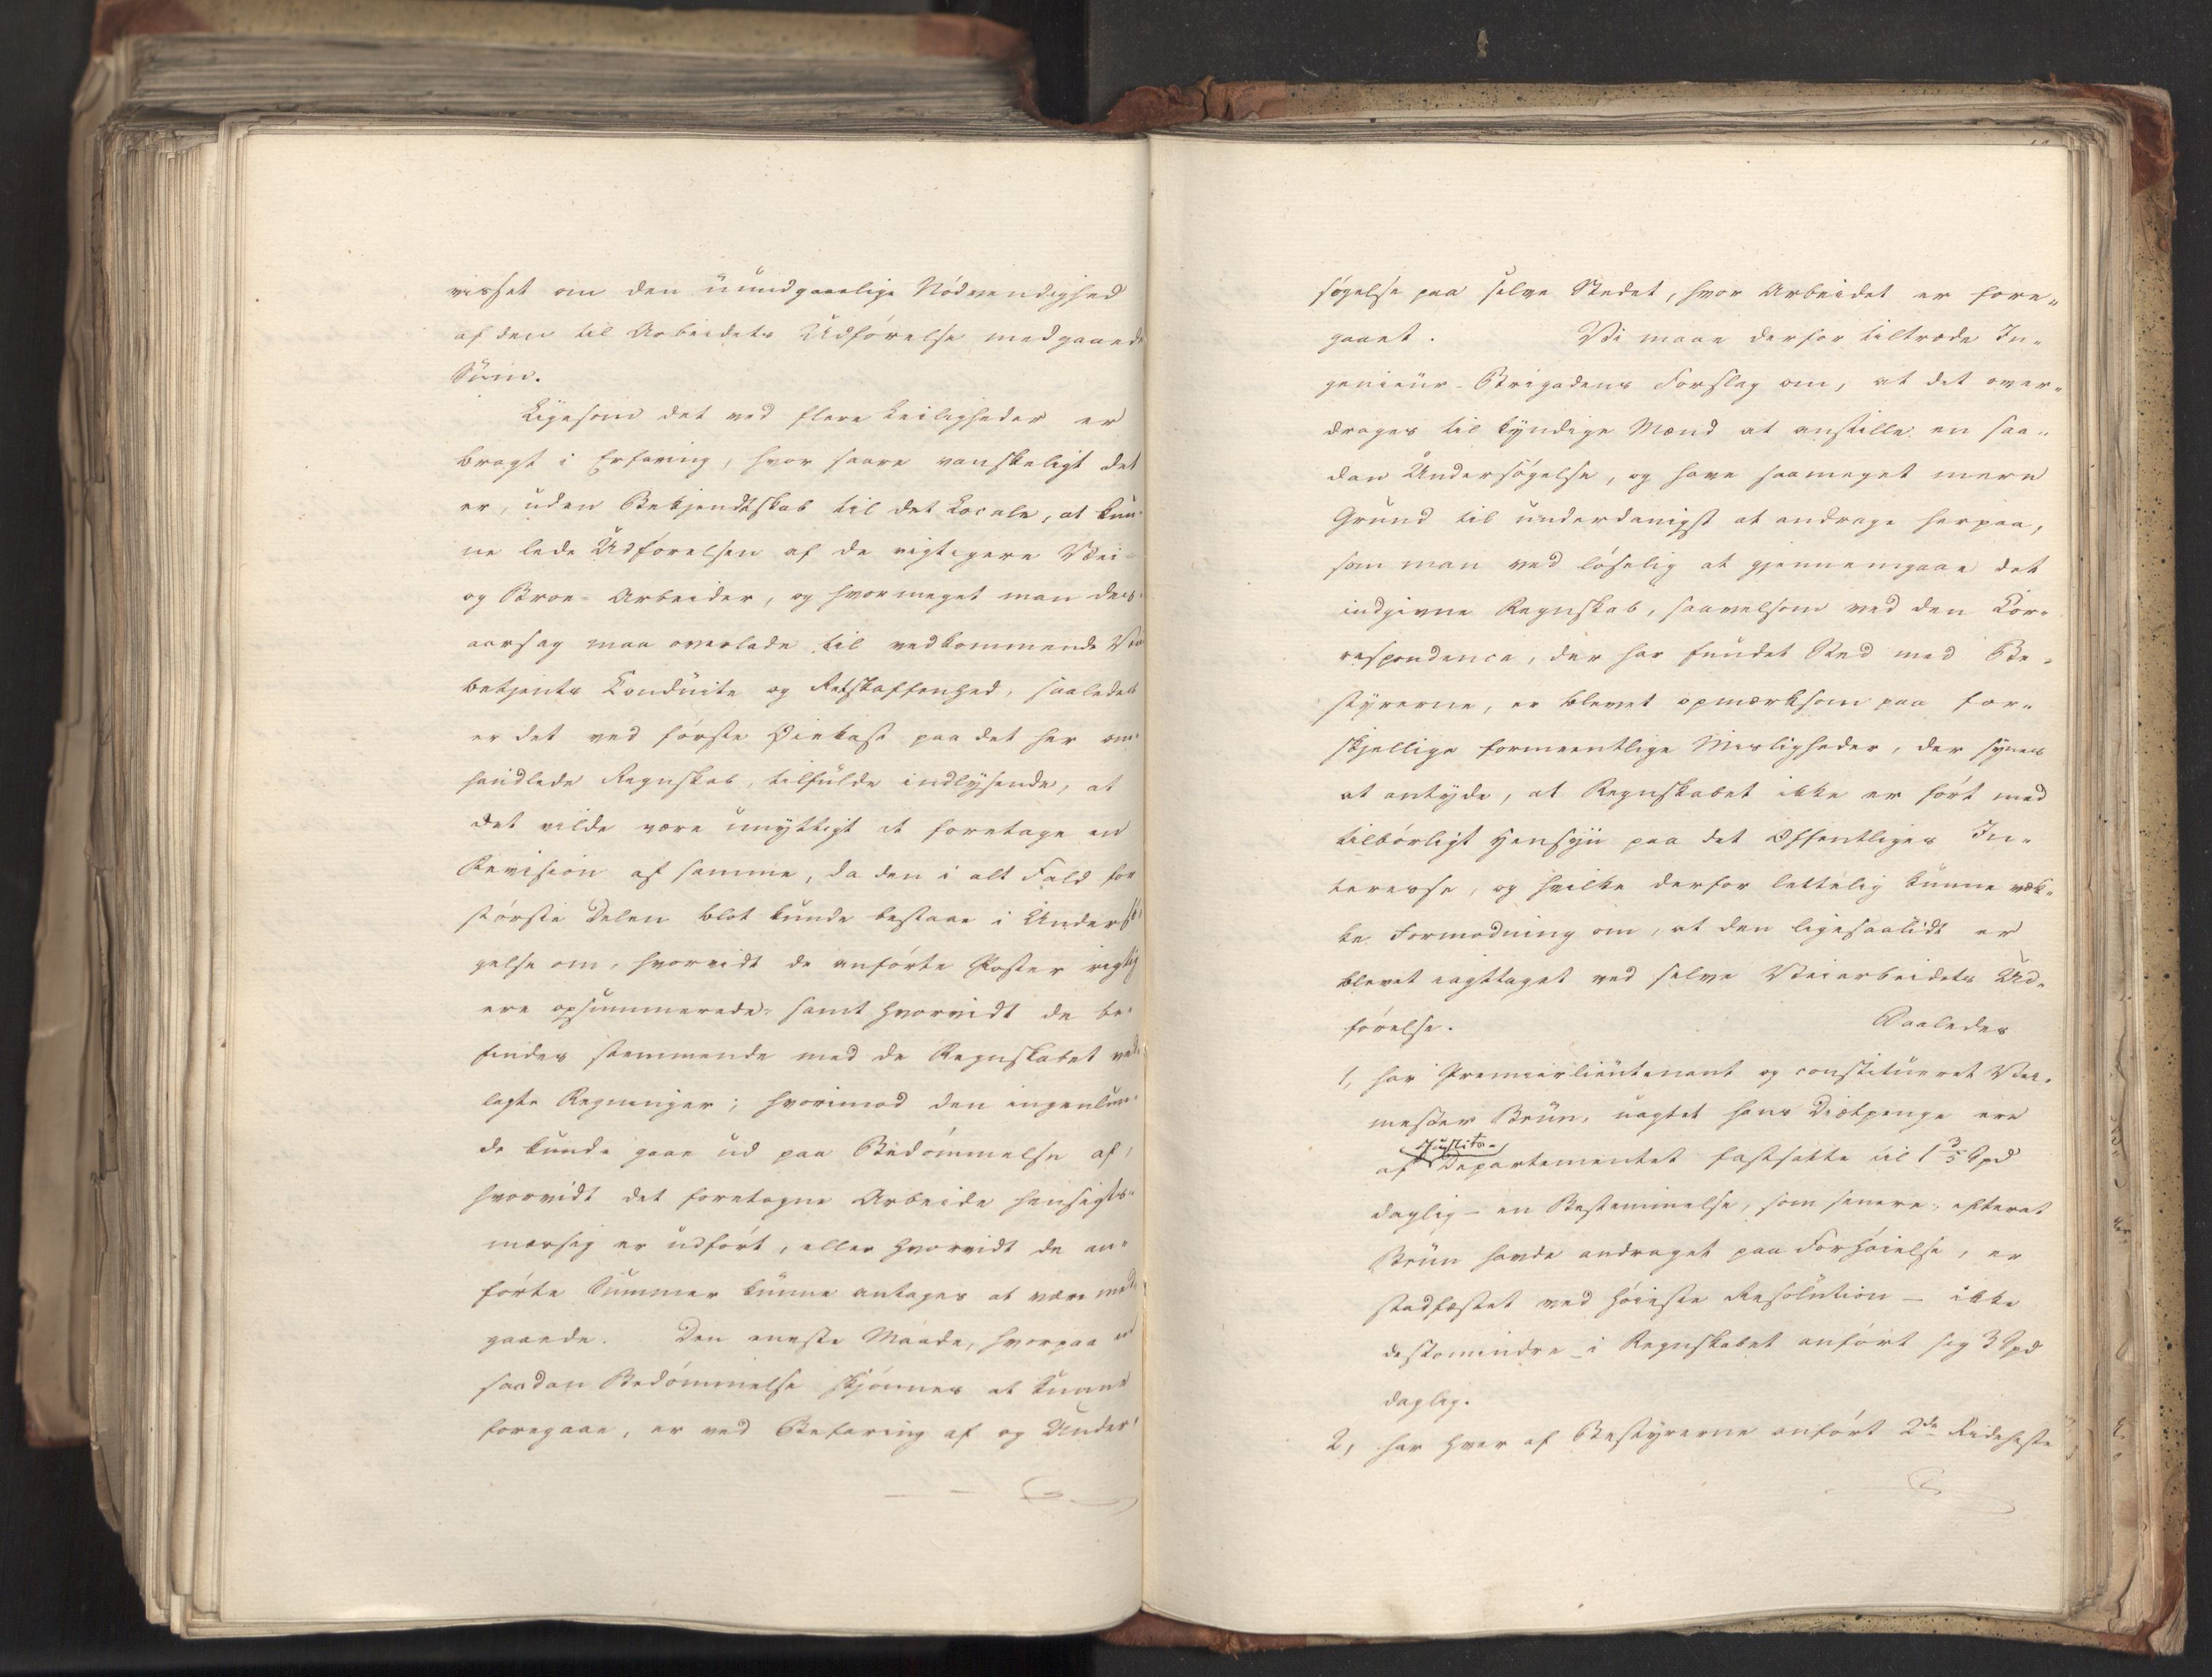 visset om den uundgaaelige Nödvendighed
af den til Arbeidets Udförelse medgaaede
Sum.
Ligesom det ved flere Leiligheder er
bragt i Erfaring, hvor saare vanskeligt det
er, uden Bekjendtskab til det Locale, at kun-
ne lede Udförelsen af de vigtigere Vei-
og Broe-Arbeider, og hvormeget man des-
aarsag maa overlade til vedkommende Vei
betjents Conduite og Retskaffenhed, saaledes
er det ved förste Øiekast paa det her om-
handlede Regnskab, tilfulde indlysende, at
det vilde være unyttigt at foretage en
Revision af samme, da den i alt Fald for
störste Delen blot kunde bestaae i Undersö-
gelse om, hvorvidt de anförte Poster rigtig
ere opsummerede, samt hvorvidt de be-
findes stemmende med de Regnskabet ved-
lagte Regninger; hvorimod den ingenlun-
de kunde gaae ud paa Bedömmelse af,
hvorvidt det foretagne Arbeide hensigts-
mæssig er udfört, eller hvorvidt de an-
förte Summer kunne antages at være med-
gaaede. Den eneste Maade, hvorpaa en
saadan Bedömmelse skjönnes at kunne
foregaae, er ved Befaring af og Under-
sögelse paa selve Stedet, hvor Arbeidet er fore-
gaaet. Vi maae derfor tiltræde In-
genieur-Brigadens Forslag om, at det over-
drages til kyndige Mænd at anstille en saa-
dan Undersögelse, og have saameget mere
Grund til underdanigst at andrage herpaa,
som man ved löselig at gjennemgaae det
indgivne Regnskab, saavelsom ved den Cor-
respondence, der har fundet Sted med Be-
styrerne, er blevet opmærksom paa for-
skjellige formeentlige Misligheder, der synes
at antyde, at Regnskabet ikke er fört med
tilbörligt Hensyn paa det Offentliges In-
teresse, og hvilke derfor lettelig kunne væk-
ke Formodning om, at den ligesaalidt er
blevet iagttaget ved selve Veiarbeidets Ud-
förelse. Saaledes
1, har Premierlieutenant og constitueret Vei-
mester Brun, uagtet hans Diætpenge ere
Justits-
af Departementet fastsatte til 1 3/5 Spd
daglig - en Bestemmelse, som senere, efterat
Brun havde andraget paa Forhöielse, er
stadfæstet ved höieste Resolution - ikke
destomindre i Regnskabet anfört sig 3 Spd
daglig.
2, har hver af Bestyrerne anfört 2de Rideheste